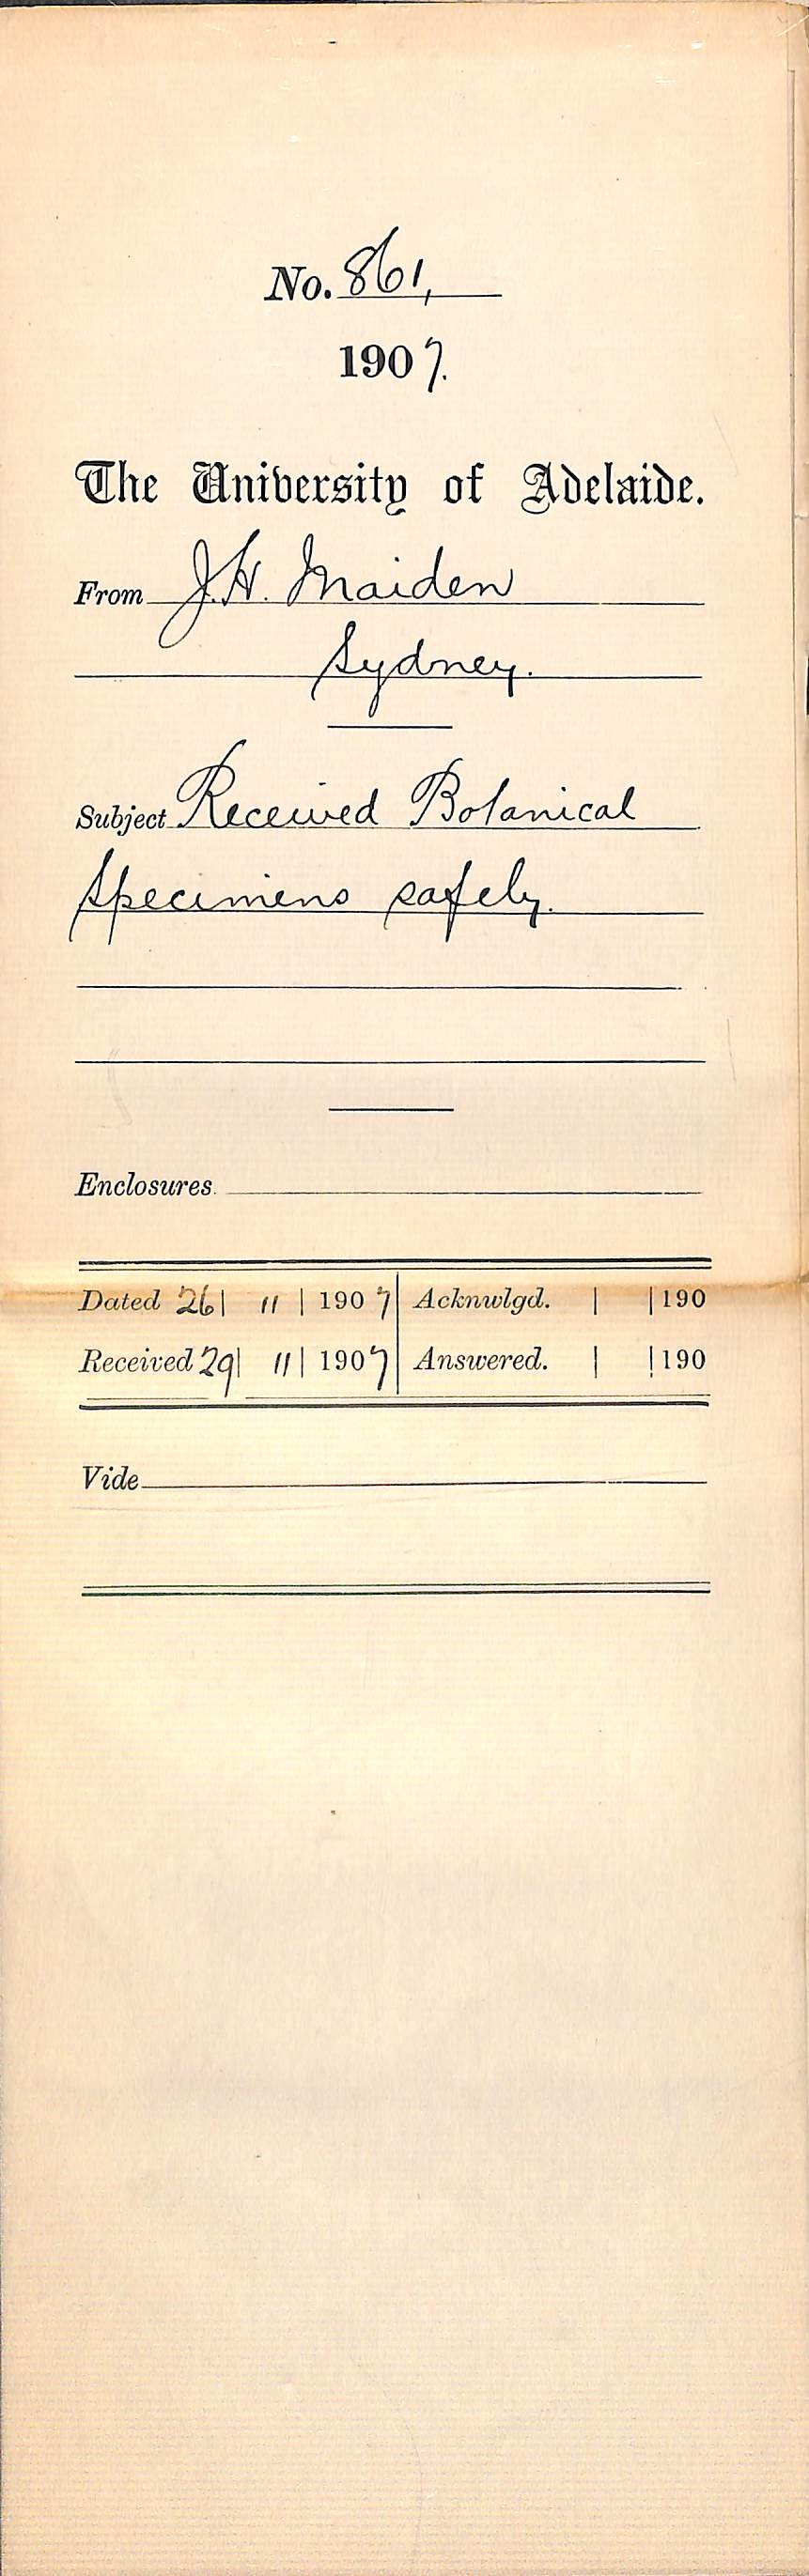 No. 861,
1907.
The University of Adelaide.
From J.H. Maiden
Sydney.
Subject Received Botanical
Specimens safely.
Enclosures
Dated 26| 11 | 1907 Acknwlgd. | |190
Received 29| 11| 1907 Answered. | |190
Vide